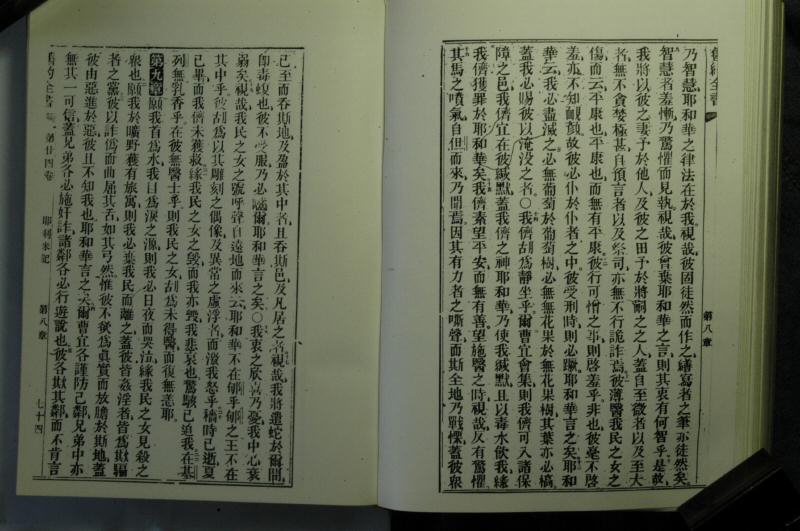 舊約全書
第八章
乃智慧耶和華之律法在於我視哉彼固徒然而作之繕寫者之筆亦徒然矣
智慧者羞慚乃驚懼而見執視哉彼曾棄耶和華之言則其衷有何智乎是故
我將以彼之妻予於他人及彼之田予於將嗣之之人蓋自至微者以及至大
者無不貪婪極甚自預言者以及祭司亦無不行詭詐焉彼薄醫我民之女之
傷而云平康也平康也而無有平康彼行可憎之事則啓羞乎非也彼毫不啓
羞亦不知靦顏故彼必仆於仆者之中彼受刑時則必蹶耶和華言之矣耶和
華云我必盡滅之必無葡萄於葡萄樹必無無花果於無花果樹其葉亦必槁
蓋我必賜彼以淹沒之者〇我儕刮為靜坐乎爾曹宜會集則我儕可入諸保
障之邑我儕宜在彼緘默蓋我儕之神耶和華乃使我緘默且以毒水飲我緣
我儕獲罪於耶和華矣我儕素望平安而無有善望施醫之時視哉反有驚懼
其馬之噴氣自但而來乃聞焉因其有力者之嘶聲而斯全地乃戰慄蓋彼眾
已至而吞斯地及盈於其中者且吞斯邑及凡居之者視哉我將遣蛇於爾間
即毒蝮也彼不受服乃必噬爾耶和華言之矣〇我衷之欣喜乃憂我中心衰
弱矣視哉我民之女之號呼聲自遠地而來云耶和華不在郇乎郇之王不在
其中乎彼刮為以其雕刻之偶像及異常之虛浮者而激我怒乎穡時已逝夏
已畢而我儕未獲救緣我民之女之毀而我亦毀我悲哀也驚駭已迫我在基
列無乳香乎在彼無醫士乎則我民之女刮為未得醫而復無恙耶
第九章願我首為水我目為淚之源則我必日夜而哭泣緣我民之女見殺之
眾也願我於曠野獲有旅寓則我必棄我民而離之蓋彼皆姦淫者皆為欺騙
者之黨彼以詐偽而曲屈其舌如其弓然惟彼不於眞實而放膽於斯地蓋
彼由惡進於惡彼且不知我也耶和華言之矣爾曹宜各謹防己鄰兄弟中亦
無其一可信蓋兄弟各必施奸詐諸鄰各必行遊說也彼各欺其鄰而不肯言
舊約全書
第廿四卷
耶利米記
第八章
七十四